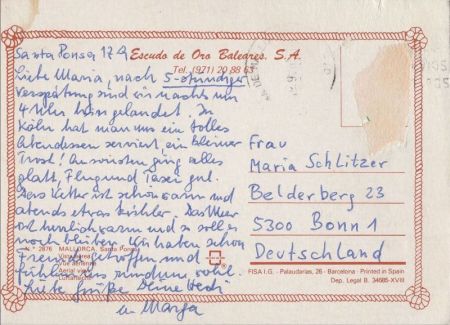 Santa Ponsa 17.9
Escudo de Oro Baleares, S.A.
Tel. (971) 20 88 63
Liebe Maria, nach 5-stündiger
Verspätung sind wir nachts um
4 Uhr hier gelandet. In
Köln hat man uns ein tolles
Abendessen serviert, ein kleiner
Trost! Ansonsten ging alles
glatt, Flug und Taxi gut.
Das Wetter ist schön warm und
abends etwas kühler. Das Meer
ist herrlich warm und so soll es
noch bleiben. Wir haben schon
Freunde getroffen und
fühlen uns rundum wohl.
Liebe Grüße Deine Hedi
u. Marga
N.º 2876 MALLORCA. Santa Ponsa
Vue aérienne
Aerial view
Luftansicht
Frau
Maria Schlitzer
Belderberg 23
5300 Bonn 1
Deutschland
FISA I.G. - Palaudarias, 26 - Barcelona - Printed in Spain
Dep. Legal B. 34685-XVIII